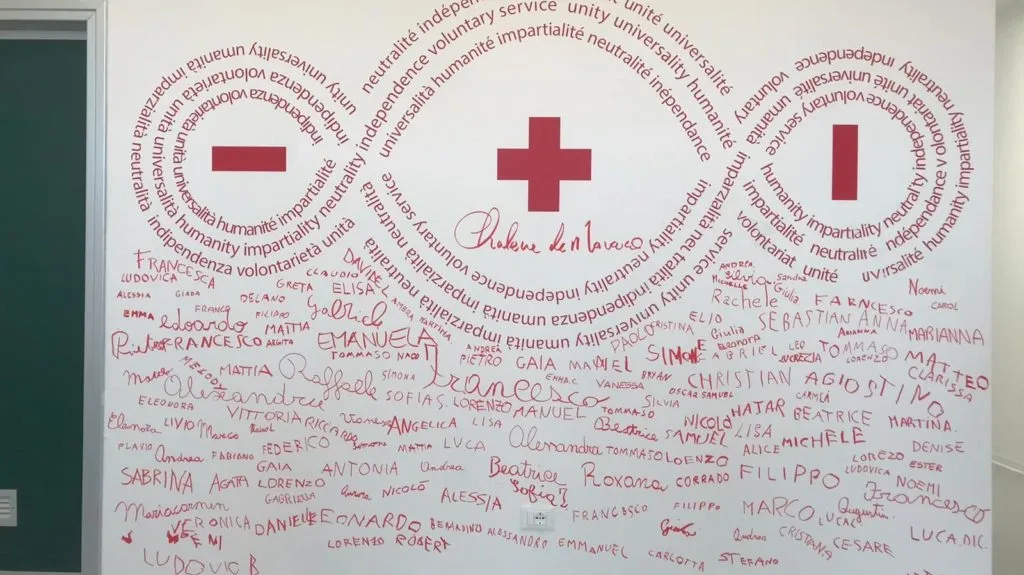 neutralité indépendance voluntary service unity universality humanité impartialité neutralité indépendance
unité universalité
unity universality humanité
imparzialità neutralità indipendenza volontarietà unità
universality umanità
indipendenza volontarietà unità universalità humanité impartialité
humanity impartiality neutrality independence voluntary service
neutrality independence
humanity impartiality neutrality independence
impartialité neutralité indépendance volontariat unité
volontariat unité
universalité humanity impartiality neutrality
voluntary service unity
imparzialità neutralità
Charlene de Monaco
FRANCESCA
DAVIDE
LUDOVICA
CLAUDIO
GRETA
ELISA
ANDREA
Silvia
Sandra
MICHELLE
Giulia
Noemi
ALESSIA
GIADA
DELANO
Gabriele
AMBRA
MARTINA
Rachele
FARNCESCO
CAROL
EMMA
edoardo
FILIPPO
MATTIA
EMANUELA
ELIO
SEBASTIAN
ANNA
MARIANNA
Pietro
FRANCESCO
TOMMASO
ANDREA
PIETRO
GAIA
MANUEL
PAOLO
CRISTINA
SIMONE
Giulia
Eleonora
GABRIEL
LEO
LUCREZIA
TOMMASO
LORENZO
MATTEO
CLARISSA
MELODY
MATTIA
Raffaele
SIMONA
Francesco
VANESSA
BRYAN
OSCAR
SAMUEL
CHRISTIAN
AGOSTINO
Alexandru
SOFIA S.
LORENZO
MANUEL
TOMMASO
SILVIA
ELEONORA
VITTORIA
RICCARDO
ANGELICA
LISA
Beatrice
NICOLÒ
HATAR
BEATRICE
MARTINA
Eleonora
LIVIO
Marco
Alessandra
TOMMASO
SAMUEL
LISA
FLAVIO
Andrea
FABIANO
FEDERICO
Simone
MATTIA
LUCA
LOENZO
ALICE
MICHELE
DENISE
LOREZO
LUDOVICA
ESTER
SABRINA
AGATA
GAIA
LORENZO
ANTONIA
Andrea
Beatrice
Roxana
CORRADO
FILIPPO
NOEMI
Francesco
Mariacarmen
GABRIELLA
Aurora
NICOLÒ
ALESSIA
Sofia
FRANCESCO
FILIPPO
MARCO
LUCA
Augustin
VERONICA
DANIELE
LEONARDO
BENADINO
ALESSANDRO
EMMANUEL
Giulia
Andrea
CRISTIANA
CESARE
LUCA.DIC.
LORENZO
ROBERT
CARLOTTA
STEFANO
LUDOVIC B